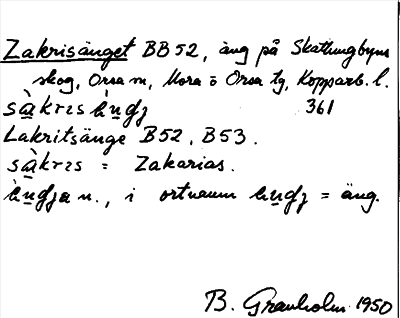 Zakrisänget BB52, äng på Skattungbyns
skog, Orsa sn, Mora o Orsa tg, Kopparb. l.
sàkrɪs
361
Lakritsänge B52, B53.
sàkrɪs = Zakarias.
n., i ortnamn = äng.
B. Granholm 1950